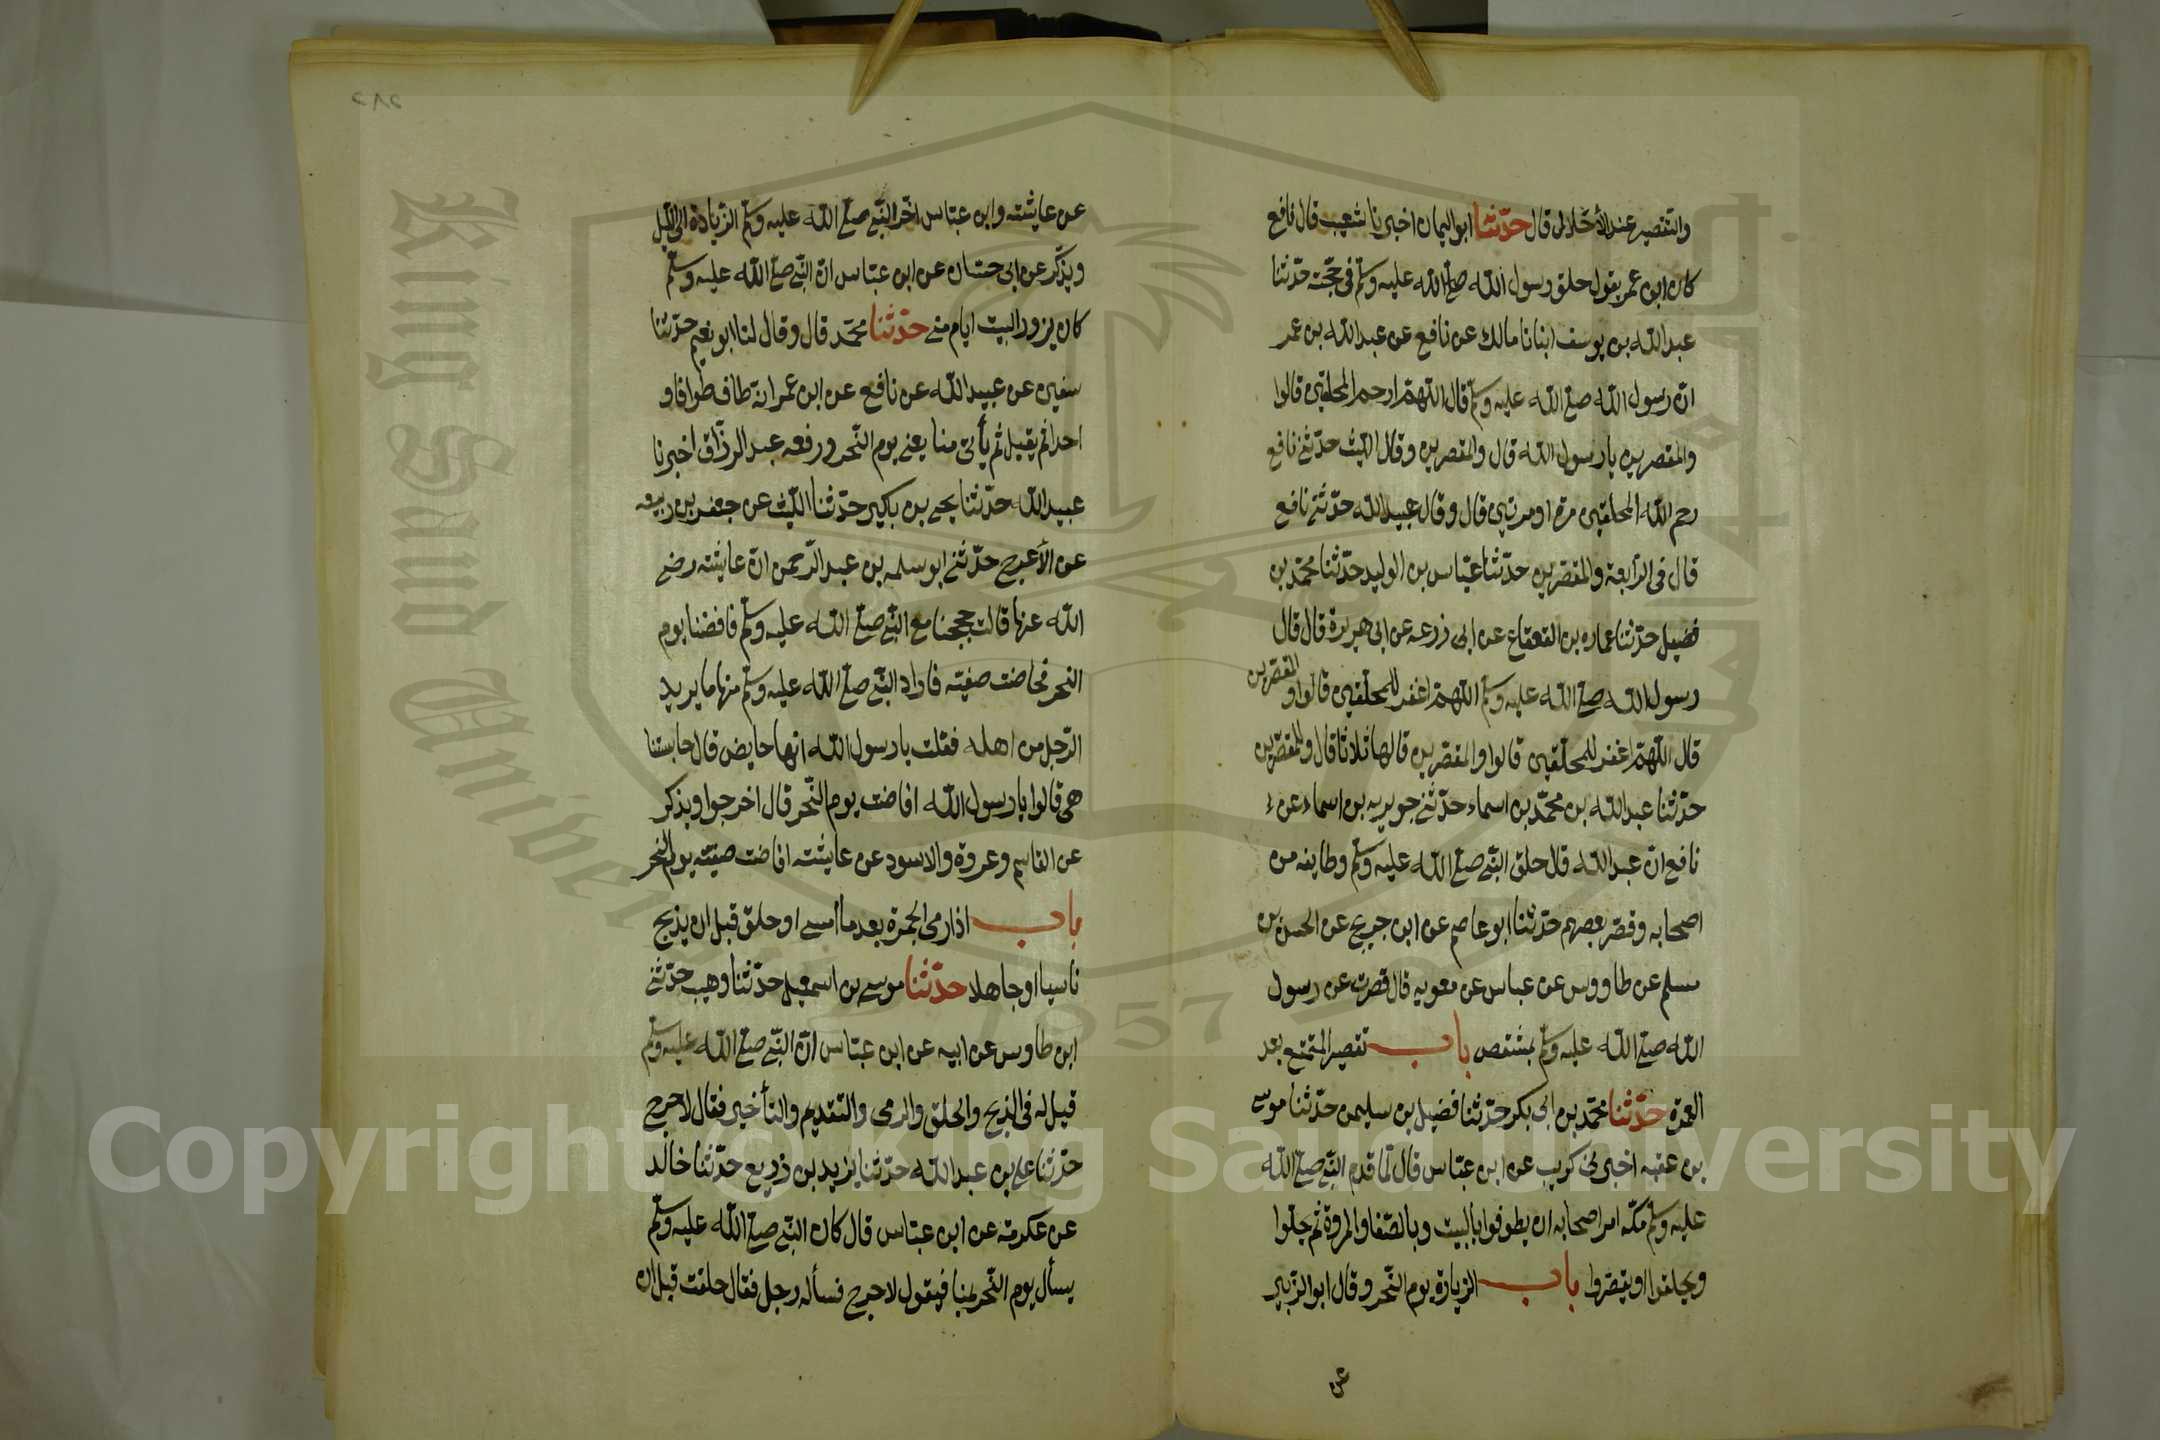 والتقصير عند الأحلال قال حدّثنا ابو اليمان اخبرنا شعيب قال نافع
كان ابن عمر يقول حلق رسول الله صلى الله عليه وسلم في حجّته حدّثنا
عبدالله بن يوسف انبانا مالك عن نافع عن عبدالله بن عمر
انّ رسول الله صلى الله عليه وسلم قال اللهمّ ارحم المحلقين قالوا
والمقصرين يا رسول الله قال والمقصرين وقال الليث حدّثني نافع
رحم الله المحلقين مرة او مرتين قال وقال عبيدالله حدّثني نافع
قال في الرّابعة والمقصرين حدّثنا عيّاس بن الوليد حدّثنا محمّد بن
فضيل حدّثنا عماره بن القعقاع عن ابي زرعه عن ابي هريرة قال قال
رسول الله صلى الله عليه وسلم اللهمّ اغفر للمحلّقين قالوا والمقصّرين
قال اللهمّ اغفر للمحلّقين قالوا والمقصرين قالها ثلاثا قال وللمقصّرين
حدّثنا عبدالله بن محمّد بن اسماء حدّثني جويريه بن اسماء عن
نافع انّ عبدالله قال حلق النبّي صلى الله عليه وسلم وطايفه من
اصحابه وقصّر بعضهم حدّثنا ابو عاصم عن ابن جريج عن الحسن بن
مسلم عن طاووس عن عباس عن معويه قال قصرت عن رسول
الله صلى الله عليه وسلم بمشقص باب تقصير المتمتع بعد
العمرة حدّثنا محمّد بن ابي بكر حدّثنا فضيل بن سليمن حدّثنا موسى
بن عقبه اخبرني كريب عن ابن عبّاس قال لمّا قدم النبّي صلى الله
عليه وسلم مكّه امر اصحابه ان يطوفوا بالبيت وبالصّفا والمروة ثم يحلّوا
ويحلقوا او يقصّروا باب الزيارة يوم النّحر وقال ابو الزبير
عن
٢٨٢
عن عايشته وابن عبّاس اخّر النبّي صلى الله عليه وسلم الزيادة الى الليل
ويذكّر عن ابي حسّان عن ابن عبّاس انّ النبّي صلى الله عليه وسلم
كان يزور البيت ايام منى حدّثنا محمّد قال وقال لنا ابو نعيم حدّثنا
سفين عن عبيدالله عن نافع عن ابن عمر انه طاف طوافا و
احدا ثم يقيل ثم يأتي منا يعني يوم النّحر ورفعه عبد الرزّاق اخبرنا
عبيدالله حدّثنا يحيى بن بكير حدّثنا اللّيث عن جعفر بن ربيعه
عن الأعرج حدّثني ابو سلمه بن عبد الرّحمن انّ عايشته رضي
الله عنها قالت حججنا مع النبّي صلى الله عليه وسلم فافضنا يوم
النحر فحاضت صفيّه فاراد النبّي صلى الله عليه وسلم منها ما يريد
الرّجل من اهله فقلت يا رسول الله انها حايض قال حابستنا
هي قالوا يا رسول الله افاضت يوم النّحر قال اخرجوا ويذكر
عن القاسم وعروة والاسود عن عايشته افاضت صفيّه يوم النحر
باب اذا رمى الجمرة بعد ما أمسى او حلق قبل ان يذبح
ناسيا او جاهلا حدّثنا موسى بن اسمعيل حدّثنا وهيب حدّثني
ابن طاوس عن ابيه عن ابن عبّاس انّ النبّي صلى الله عليه وسلم
قيل له في الذبح والحلق والرمى والتقديم والتأخير فقال لا حرج
حدّثنا علي بن عبدالله حدّثنا يزيد بن زريع حدّثنا خالد
عن عكرمة عن ابن عبّاس قال كان النبّي صلى الله عليه وسلم
يسأل يوم النّحر بمنا فيقول لا حرج فسأله رجل فقال حلقت قبل ان
King Saud University
1957
Copyright © King Saud University